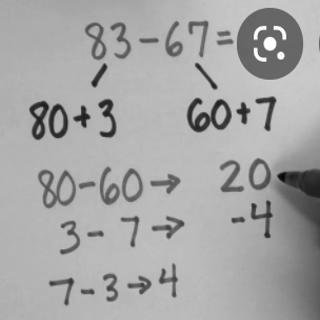 83-67=
80+3 60+7
80-60→ 20
3-7→ -4
7-3→4